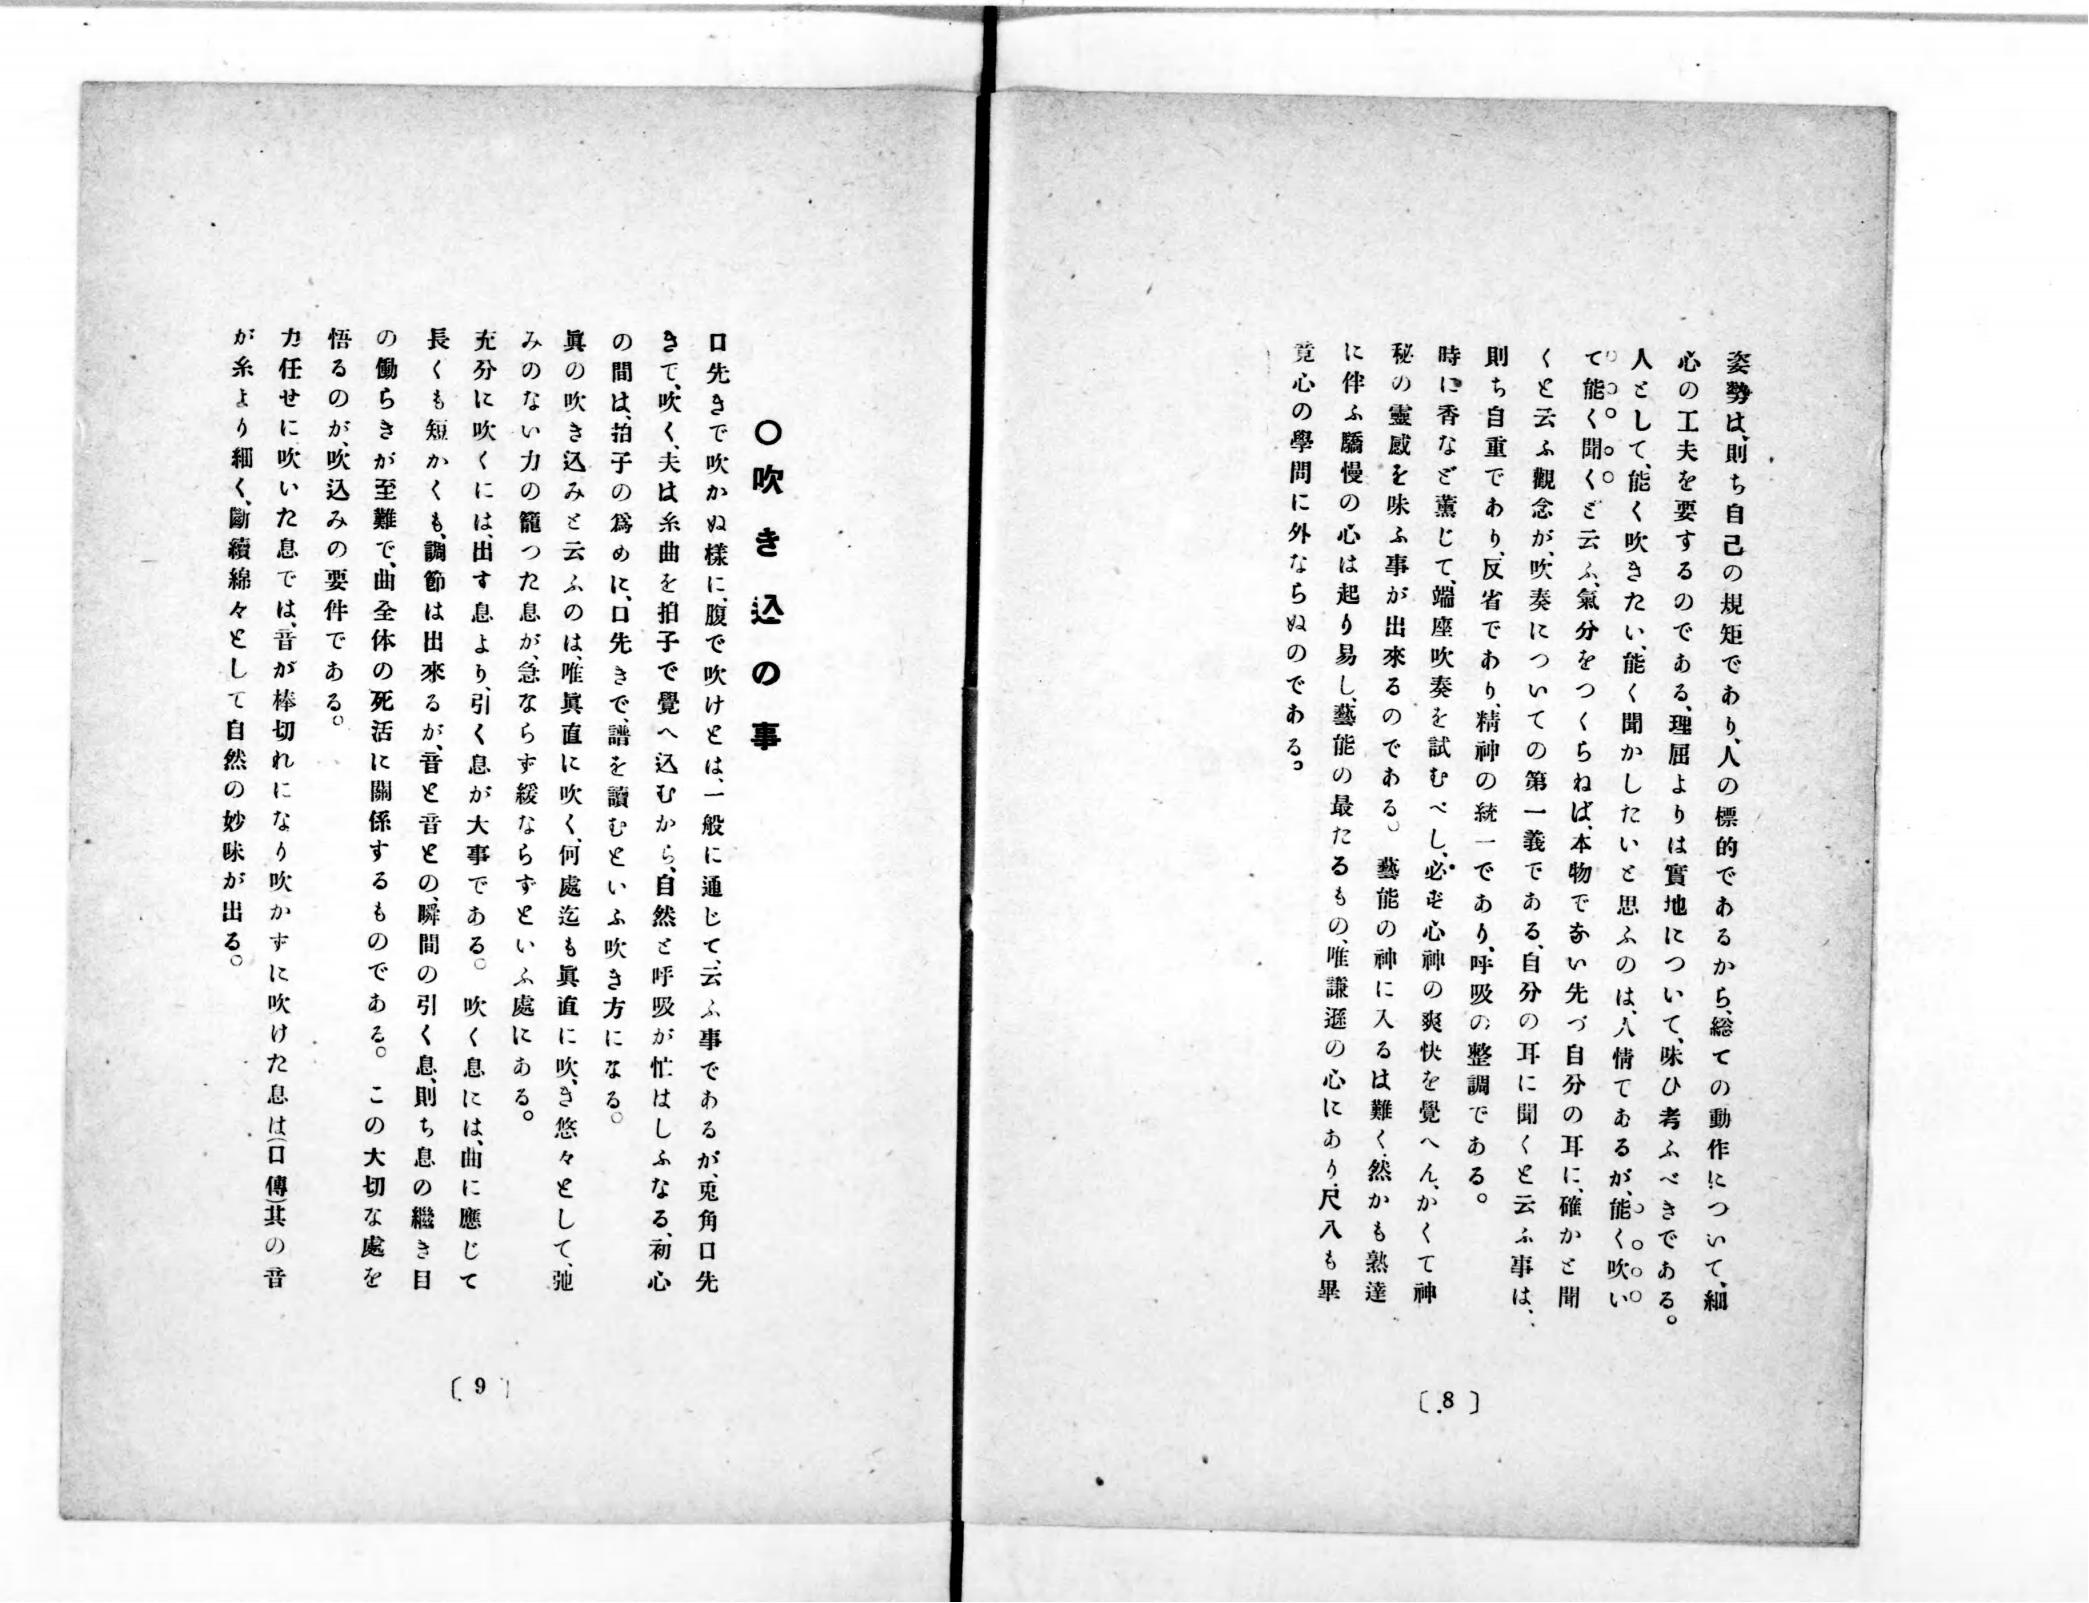 姿勢は、則ち自己の規矩であり、人の標的であるから、総ての動作について、細
心の工夫を要するのである、理屈よりは實地について、味ひ考ふべきである。
人として、能く吹きたい、能く聞かしたいと思ふのは、人情てあるが、能く吹い
て能く聞くと云ふ、氣分をつくらねば、本物でない先づ自分の耳に、確かと聞
くと云ふ觀念が、吹奏についての第一義である、自分の耳に聞くと云ふ事は、
則ち自重であり、反省であり、精神の統一であり、呼吸の整調である。
時に香など薰じて、端座吹奏を試むべし、必ず心神の爽快を覺へん、かくて神
秘の靈感を味ふ事が出來るのである。藝能の神に入るは難く、然かも熟達
に伴ふ驕慢の心は起り易し、藝能の最たるもの、唯謙遜の心にあり、尺八も畢
竟心の學問に外ならぬのである。
〔8〕
〇吹き込の事
口先きで吹かぬ樣に、腹で吹けとは、一般に通じて、云ふ事であるが、兎角口先
きて、吹く、夫は糸曲を拍子で覺へ込むから、自然と呼吸が忙はしふなる、初心
の間は、拍子の爲めに、口先きで、譜を讀むといふ吹き方になる。
眞の吹き込みと云ふのは、唯眞直に吹く、何處迄も眞直に吹、き悠々として、弛
みのない力の籠つた息が、急ならず緩ならずといふ處にある。
充分に吹くには、出す息より、引く息が大事である。吹く息には、曲に應じて
長くも短かくも、調節は出來るが、音と音との、瞬間の引く息、則ち息の繼き目
の働らきが至難で、曲全体の死活に關係するものである。この大切な處を
悟るのが、吹込みの要件である。
力任せに吹いた息では、音が棒切れになり吹かずに吹けた息は(口傳)其の音
が糸より細く、斷續綿々として自然の妙味が出る。
〔9〕